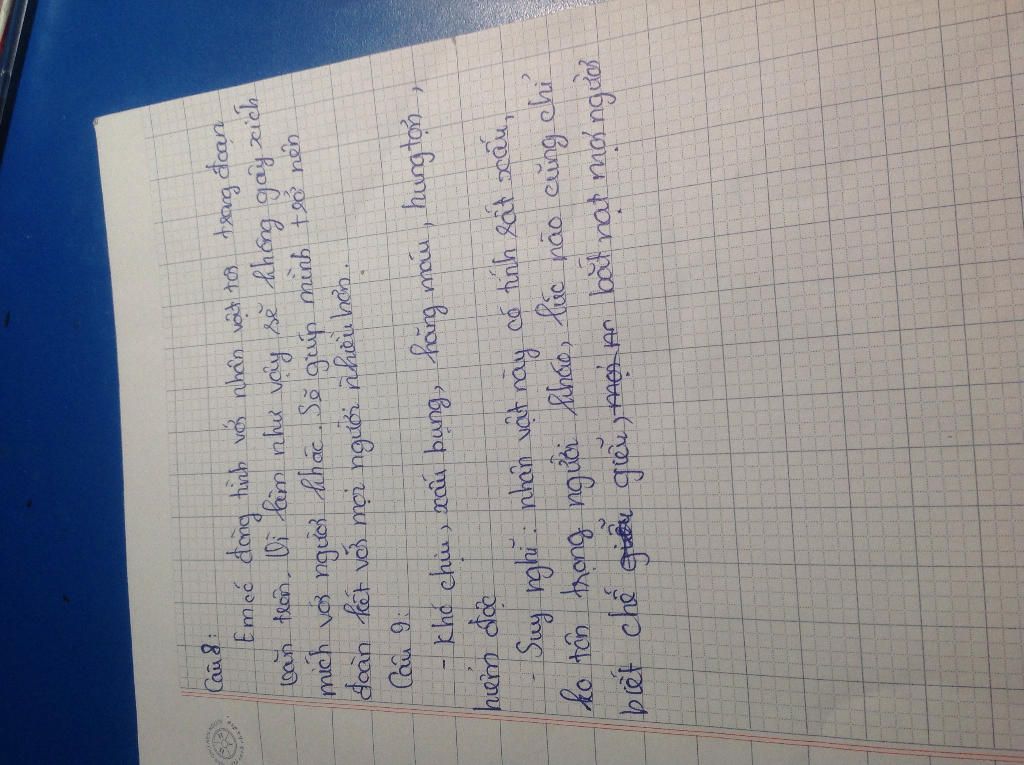 Câu 8:
Em có đồng tình với nhân vật tôi trong đoạn
văn trên. Vì làm như vậy sẽ không gây xích
mích với người khác. Sẽ giúp mình trở nên
đoàn kết với mọi người nhiều hơn.
Câu 9:
- Khó chịu, xấu bụng, hăng máu, hung tợn,
hiểm độc
- Suy nghĩ: nhân vật này có tính rất xấu,
ko tôn trọng người kháo, lúc nào cũng chỉ
biết chế giễu, bắt nạt mọi người